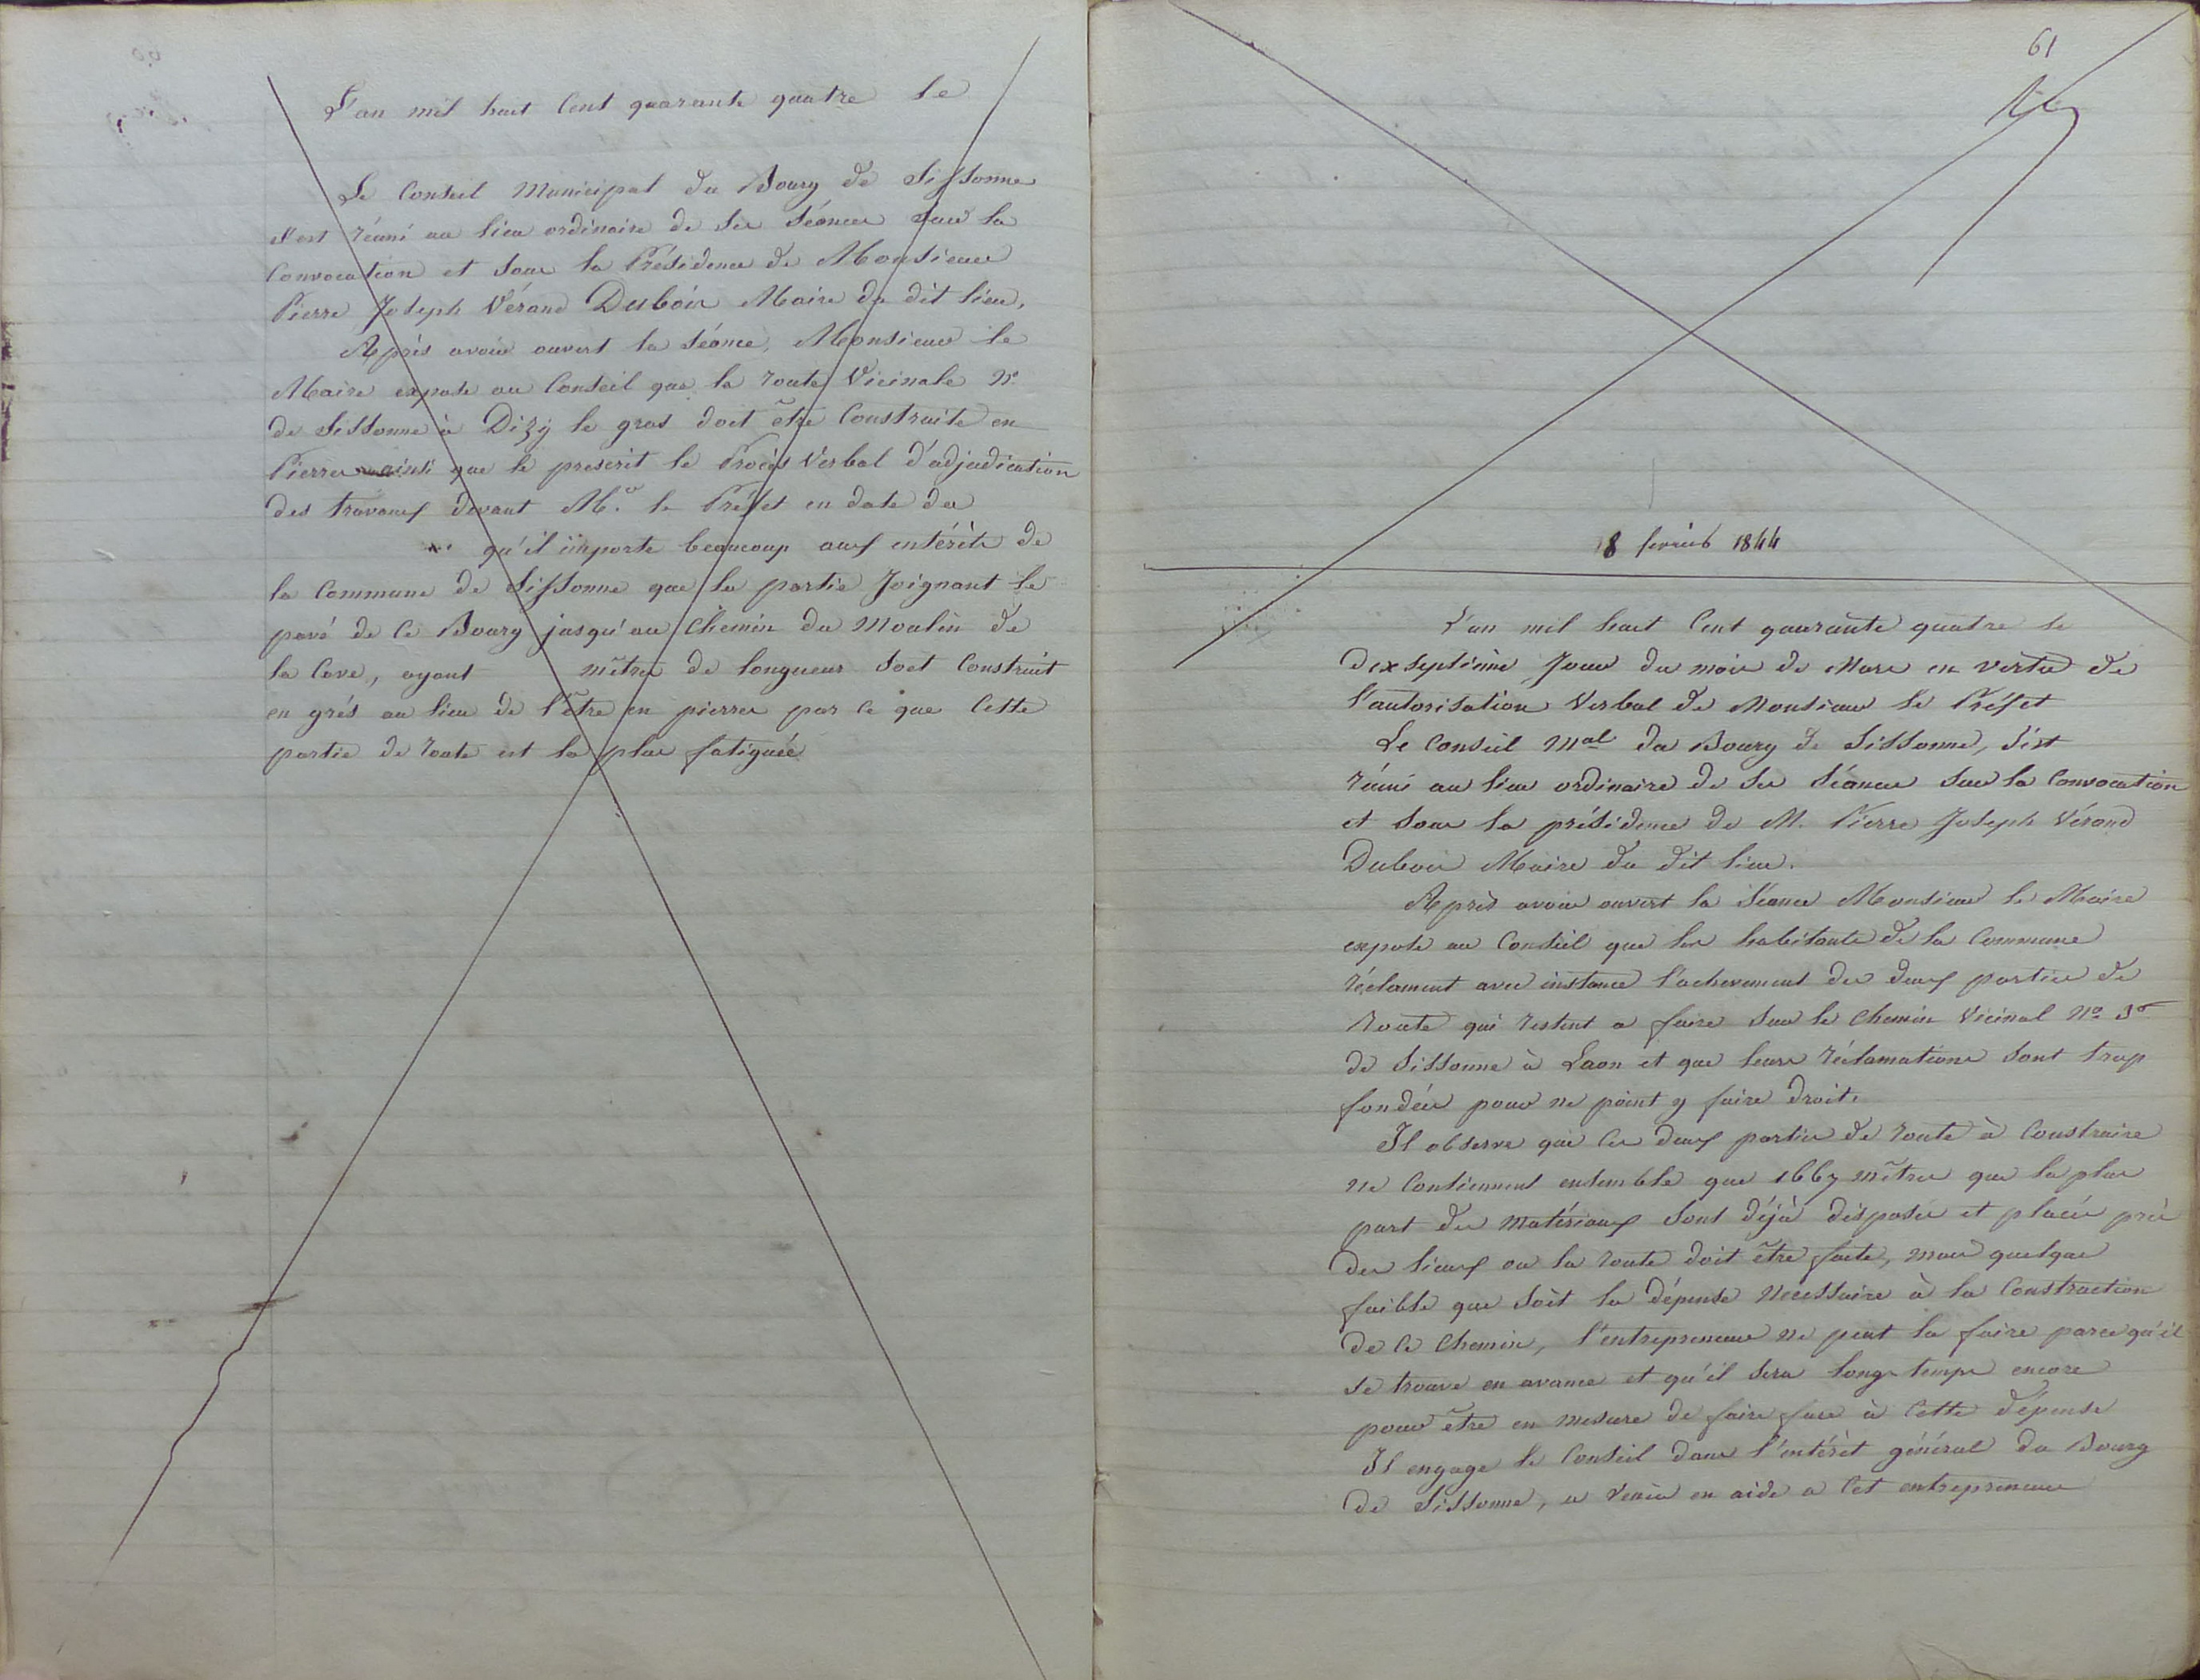 L'an mil huit Cent quarante quatre le
Le Conseil Municipal du Bourg de Sissonne
s'est réuni au lieu ordinaire de ses séances sur la
Convocation et sous la Présidence de Monsieur
Pierre Joseph Vérand Dubois Maire du dit lieu.
Après avoir ouvert la séance, Monsieur le
Maire expose au Conseil que la route Vicinale N.o
de Sissonne à Dizy le gros doit être Construite en
Pierres ainsi que le prescrit le Procès Verbal d'adjudication
des travaux devant M.r le Préfet en date du
qu'il importe beaucoup aux intérêts de
la Commune de Sissonne que la partie Joignant le
pavé de ce Bourg jusqu'au Chemin du Moulin de
la Cave, ayant mètres de longueur soit Construit
en grés au lieu de l'être en pierres par ce que Cette
partie de route est la plus fatiguée
61
8 fevrier 1844
L'an mil huit Cent quarante quatre le
dix septième Jour du mois de Mars en vertu de
l'autorisation Verbal de Monsieur le Préfet
Le Conseil Mal du Bourg de Sissonne, s'est
réuni au lieu ordinaire de ses séances sur la Convocation
et sous la présidence de M. Pierre Joseph Vérand
Dubois Maire du dit lieu.
Après avoir ouvert la Séance Monsieur le Maire
expose au Conseil que les habitants de la Commune
réclament avec instance l'achevement des deux parties de
Route qui restent a faire sur le Chemin Vicinal No 3
de Sissonne à Laon et que leurs réclamations sont trop
fondées pour ne point y faire droit.
Il observe que ces deux parties de route à Construire
ne Contiennent ensemble que 1667 mètres que la plus
part des matériaux sont déjà disposés et placés près
des lieux ou la route doit être faite, mais quelque
faible que soit la dépense necessaire à la Construction
de ce Chemin, l'entrepreneur ne peut la faire parcequ'il
se trouve en avance et qu'il sera longtemps encore
pour être en mesure de faire face à Cette dépense
Il engage le Conseil dans l'intérêt général du Bourg
de Sissonne, a venir en aide a Cet entrepreneur